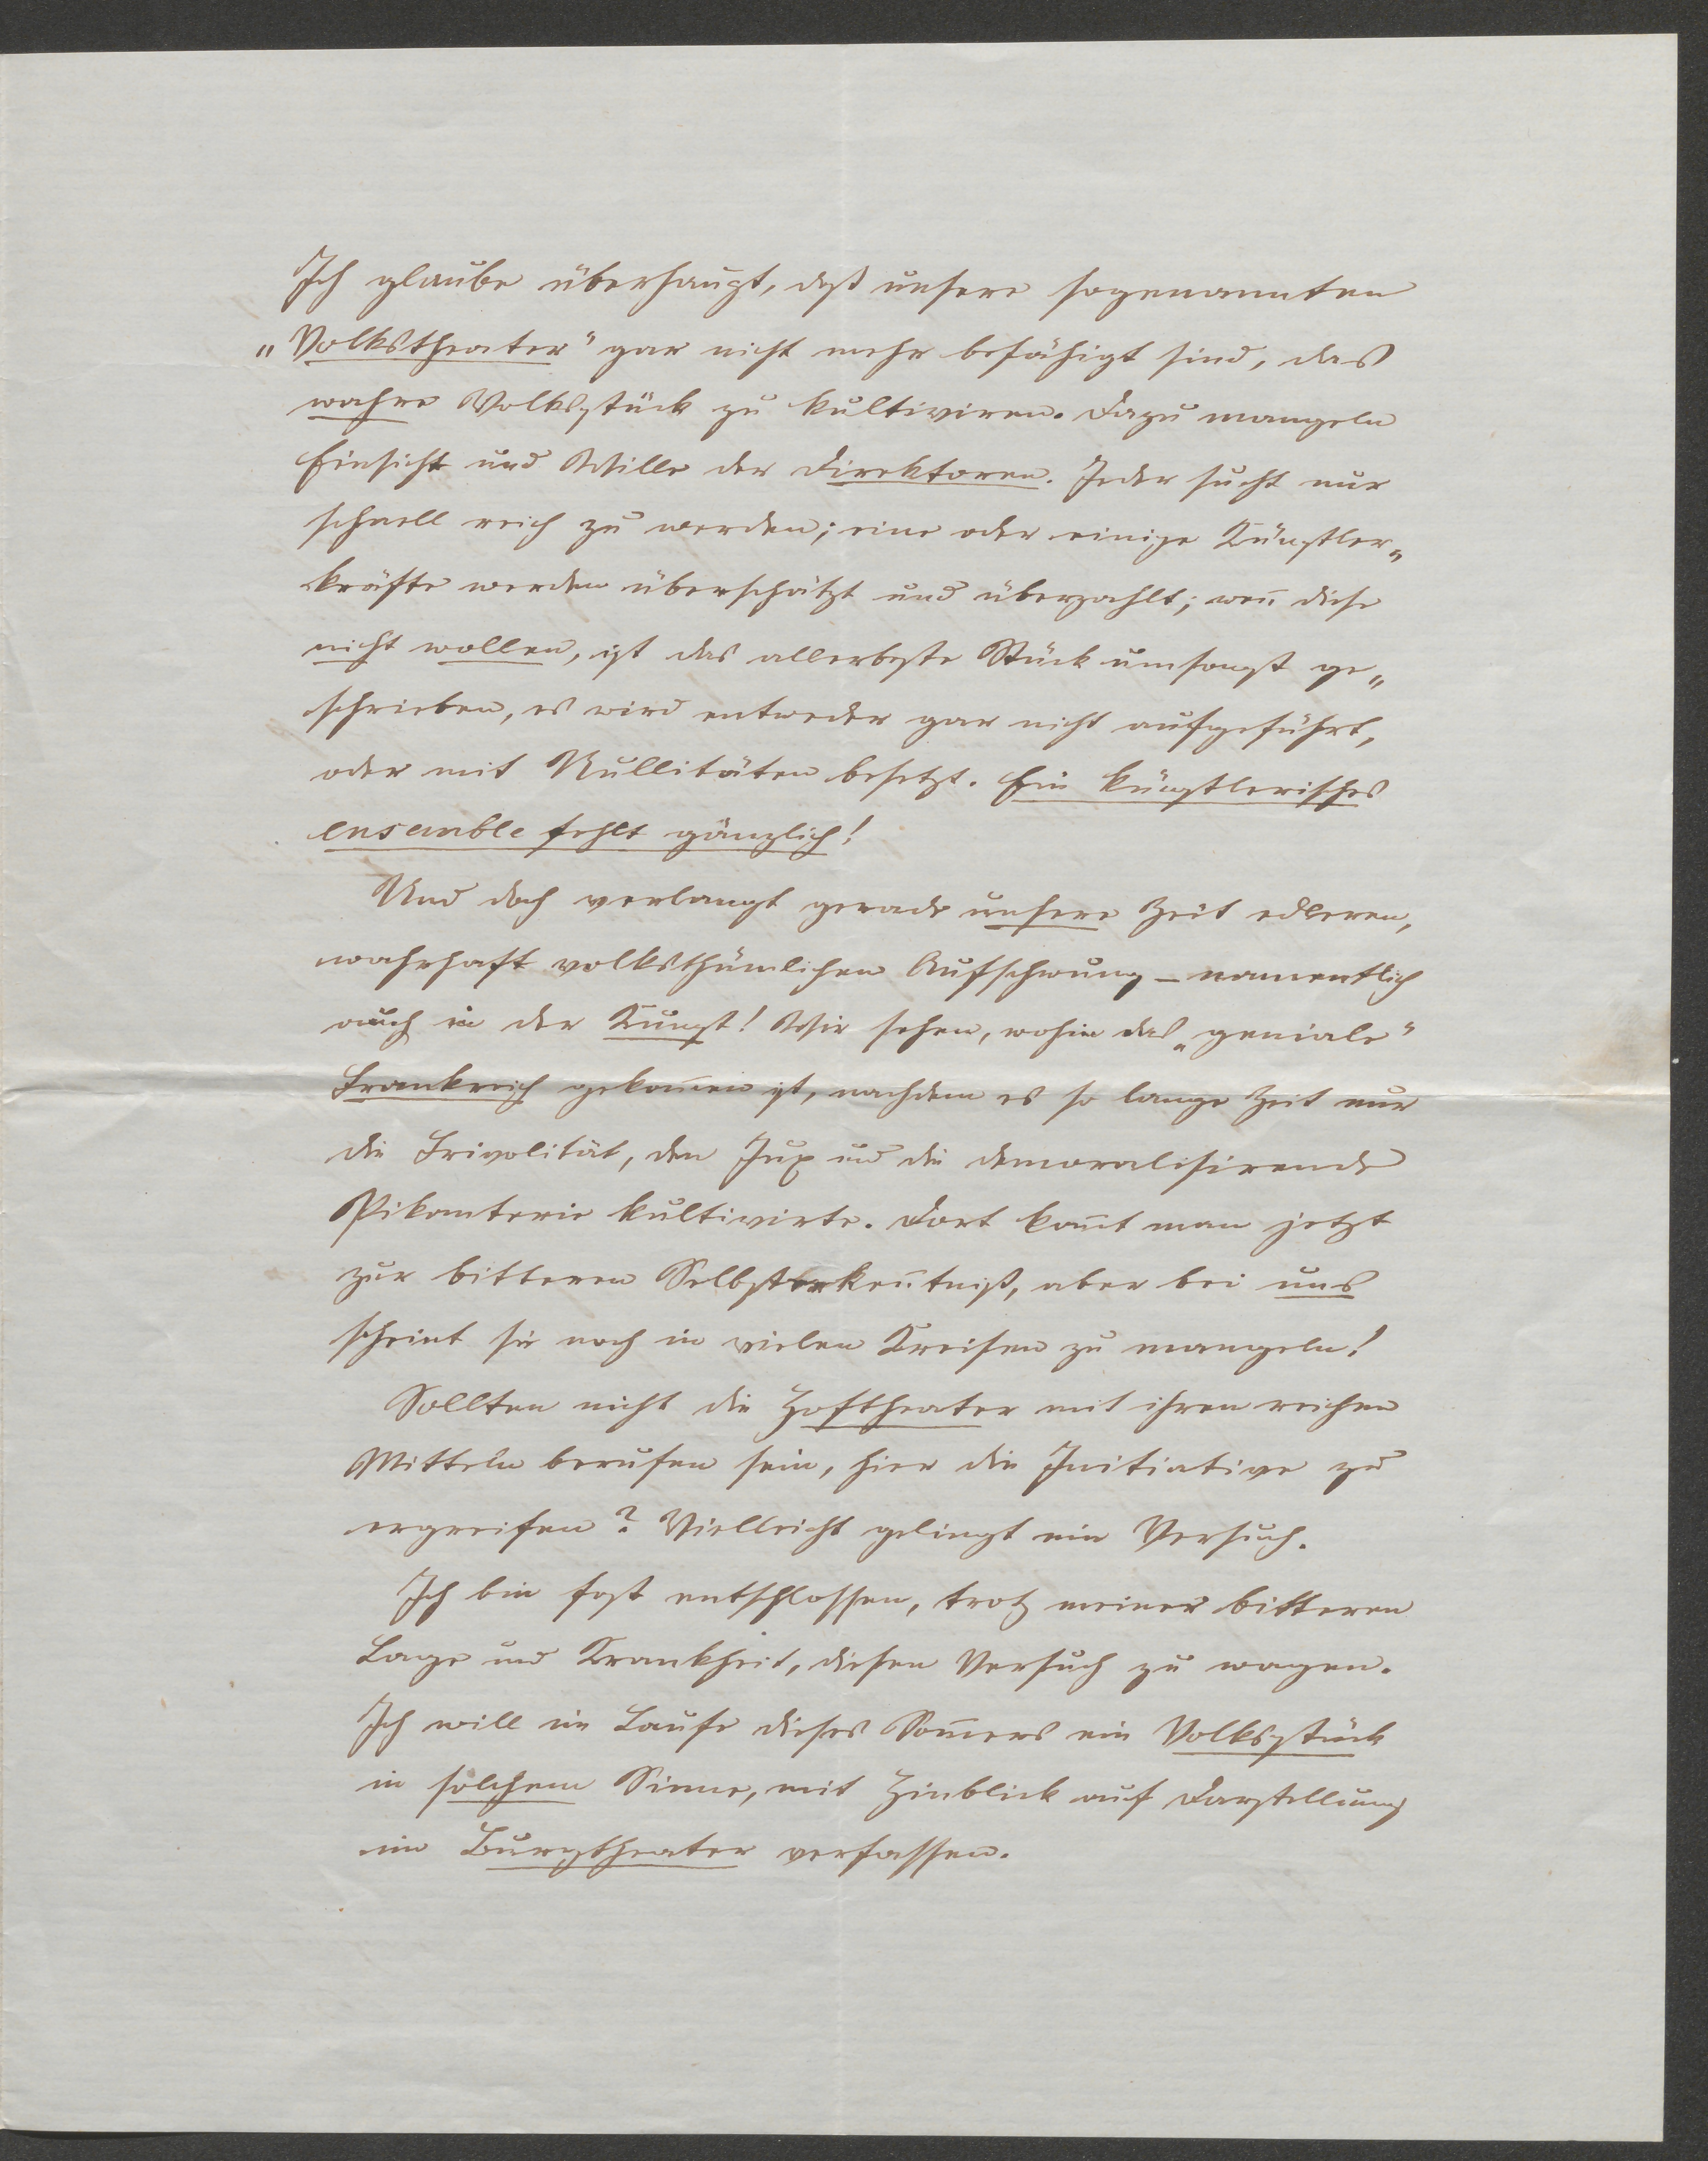 Ich glaube überhaupt, daß unsere sogenannten
„Volkstheater" gar nicht mehr befähigt sind, das
wahre Volksstück zu kultiviren. Dazu mangeln
Einsicht und Wille der Direktoren. Jeder sucht nur
schnell reich zu werden; eine oder einige Künstler„
kräfte werden überschätzt und überzahlt; weñ diese
nicht wollen, ist das allerbeste Stück umsonst ge„
schrieben, es wird entweder gar nicht aufgeführt,
oder mit Nullitäten besetzt. Ein künstlerisches
ensemble fehlt gänzlich!
Und doch verlangt gerade unsere Zeit edleren,
wahrhaft volksthümlichen Aufschwung – namentlich
auch in der Kunst! Wir sehen, wohin das „geniale"
Frankreich gekom̃en ist, nachdem es so lange Zeit nur
die Frivolität, den Jux und die demoralisirende
Pikanterie kultivirte. Dort kom̃t man jetzt
zur bitteren Selbsterkeñtniß, aber bei uns
scheint sie noch in vielen Kreisen zu mangeln!
Sollten nicht die Hoftheater mit ihren reichen
Mitteln berufen sein, hier die Initiative zu
ergreifen? Vielleicht gelingt ein Versuch.
Ich bin fest entschlossen, trotz meiner bitteren
Lage und Krankheit, diesen Versuch zu wagen.
Ich will im Laufe dieses Som̃ers ein Volksstück
in solchem Sinne, mit Hinblick auf Darstellung
im Burgtheater verfassen.